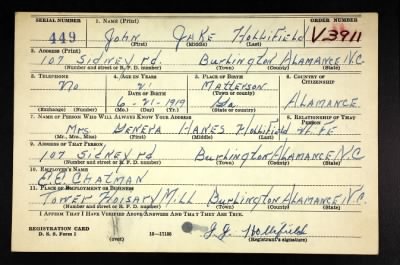 SERIAL NUMBER 1. NAME (Print) ORDER NUMBER
449 John Jake Hollifield V-3911
(First) (Middle) (Last)
2. ADDRESS (Print)
107 Sidney rd. Burlington Alamance N.C.
(Number and street or R. F. D. number) (Town) (County) (State)
3. TELEPHONE 4. AGE IN YEARS 5. PLACE OF BIRTH 6. COUNTRY OF CITIZENSHIP
No 21 Matterson
DATE OF BIRTH (Town or county)
6-21-1919 Ga. Alamance.
(Exchange) (Number) (Mo.) (Day) (Yr.) (State or country)
7. NAME OF PERSON WHO WILL ALWAYS KNOW YOUR ADDRESS 8. RELATIONSHIP OF THAT PERSON
Mrs. Geneva Hanes Hollifield Wife
(Mr., Mrs., Miss) (First) (Middle) (Last)
9. ADDRESS OF THAT PERSON
107 Sidney rd Burlington Alamance N.C.
(Number and street or R. F. D. number) (Town) (County) (State)
10. EMPLOYER'S NAME
Chatman
11. PLACE OF EMPLOYMENT OR BUSINESS
Tower Hoisary Mill Burlington Alamance N.C.
(Number and street or R. F. D. number) (Town) (County) (State)
I AFFIRM THAT I HAVE VERIFIED ABOVE ANSWERS AND THAT THEY ARE TRUE.
REGISTRATION CARD
D. S. S. Form 1 (over) 16-17105 J.J. Hollifield
(Registrant's signature)